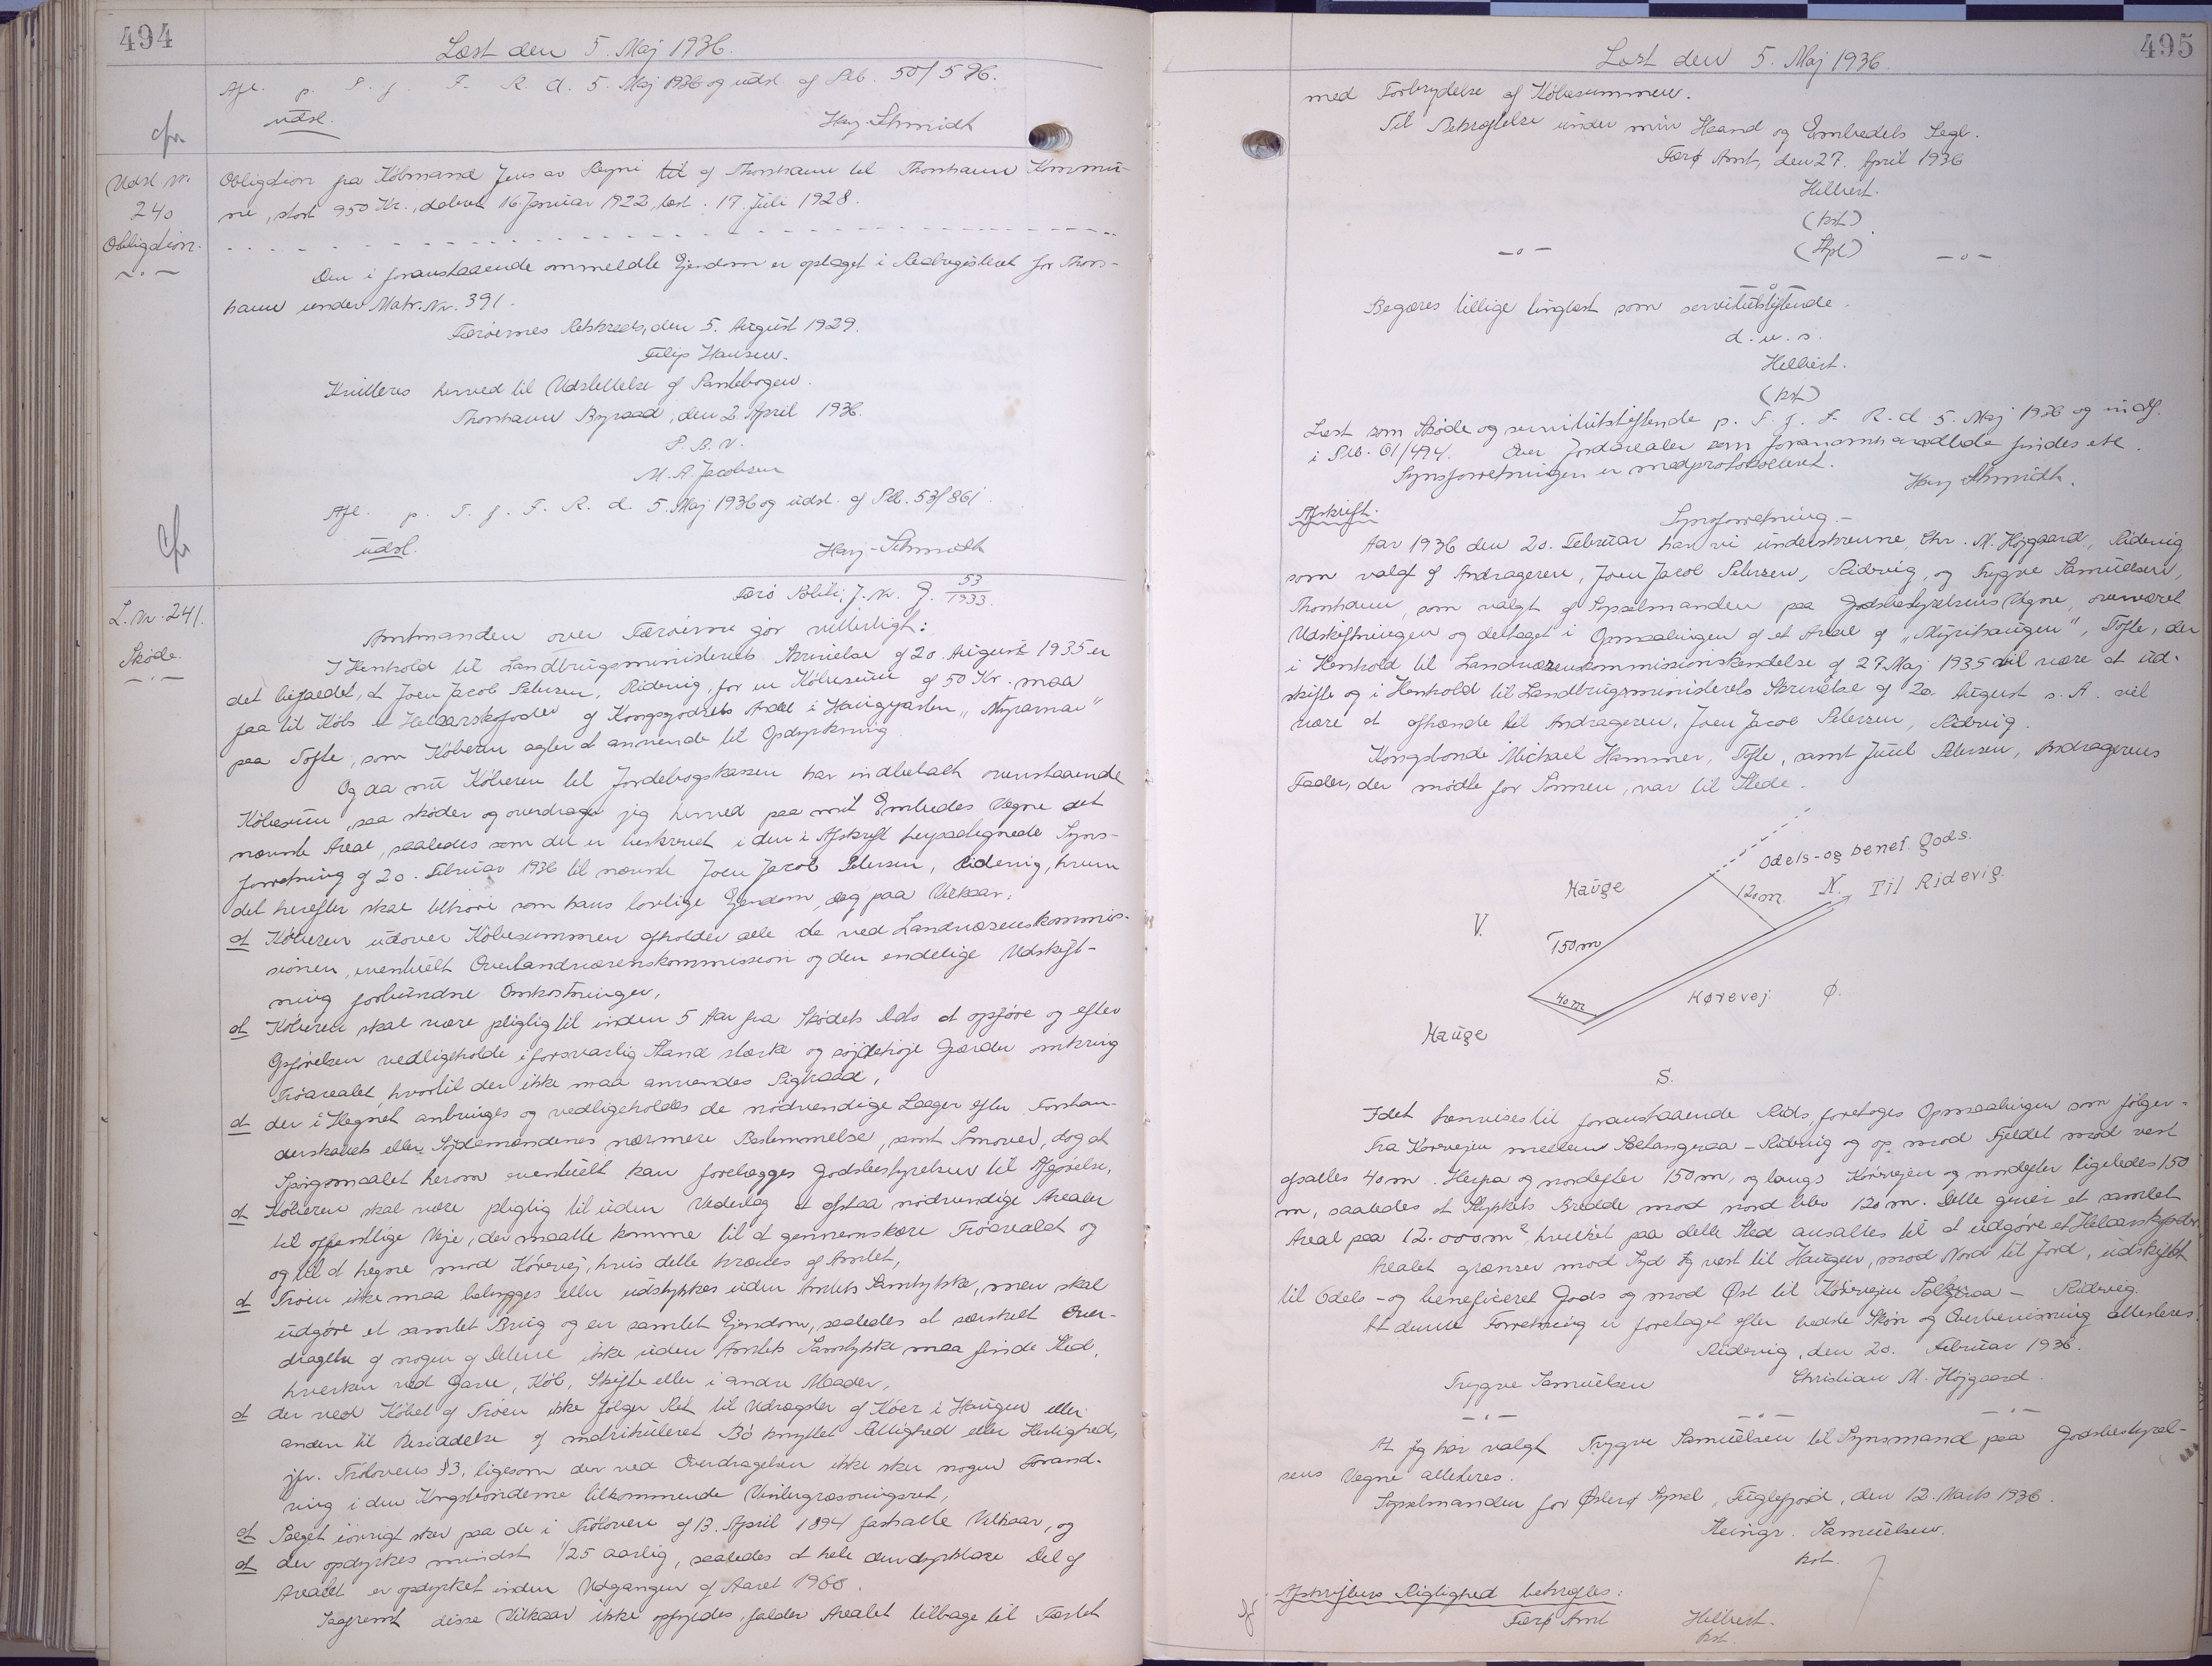 494
Læst den 5. Maj 1936.
Afl. p. T. f. F. R. d. 5. Maj 1936 og udsl. af Skb. 50/596.
udsl.
Harj-Schmidt
cfr.
Udsl. Nr.
240
Obligation.
Obligation fra Købmand Jens av Reyni til af Thorshavn til Thorshavn Kommu-
ne, stor 950 Kr., dateret 16. Januar 1922, læst. 17. Juli 1928.
Den i foranstaaende ommeldte Ejendom er optaget i Realregisteret for Thors-
havn under Matr. Nr. 391.
Færøernes Retskreds, den 5. August 1929.
Filip Hansen.
Kvitteres herved til Udslettelse af Pantebogen.
Thorshavn Byraad, den 2. April 1936.
P. B. V.
M. A. Jacobsen
Afl. p. T. f. F. R. d. 5. Maj 1936 og udsl. af Skb. 53/861.
cfr
udsl.
Harj-Schmidt
L. Nr. 241.
Skøde.
Færø Politi, J. Nr. J. 53/1933.
Amtmanden over Færøerne gør vitterligt:
I Henhold til Landbrugsministeriets Skrivelse af 20. August 1935 er
det bifaldet, at Joen Jacob Petersen, Ridevig, for en Købesum af 50 Kr. maa
faa til Købs et Helaarskofoder af Kongsgodsets Andel i Haugeparten "Myrarnar"
paa Tofte, som Køberen agter at anvende til Opdyrkning.
Og da nu Køberen til Jordebogskassen har indbetalt ovenstaaende
Købesum, saa skøder og overdrager jeg herved paa mit Embedes Vegne det
nævnte Areal, saaledes som det er beskrevet i den i Afskrift heypaategnede Syns-
forretning af 20. Februar 1936 til nævnte Joen Jacob Petersen, Ridevig, hvem
det herefter skal tilhøre som hans lovlige Ejendom, dog paa Vilkaar:
at Køberen udover Købesummen afholder alle de ved Landvæsenskommis-
sionen, eventuelt Overlandvæsenskommission og den endelige Udskift-
ning forbundne Omkostninger,
at Køberen skal være pligtig til inden 5 Aar fra Skødets Dato at opføre og efter
Opførelsen vedligeholde i forsvarlig Stand stærke og sojdehøje Gærder omkring
Trøarealet, hvortil der ikke maa anvendes Pigtraad,
at der i Hegnet anbringes og vedligeholdes de nødvendige Laager efter Forstan-
derskabets eller Sydemændenes nærmere Bestemmelse, samt Smover, dog at
Spørgsmaalet herom eventuelt kan forelægges Godsbestyrelsen til Afgørelse,
at Køberen skal være pligtig til uden Vederlag at afstaa nødvendige Arealer
til offentlige Veje, der maatte komme til at gennemskære Trøarealet og
og til at hegne mod Kørevej, hvis dette kræves af Amtet,
at Trøen ikke maa bebygges eller udstykkes uden Amtets Samtykke, men skal
udgøre et samlet Brug og en samlet Ejendom, saaledes at særskilt Over-
dragelse af nogen af Delene ikke uden Amtets Samtykke maa finde Sted,
hverken ved Gave, Køb, Skifte eller i andre Maader,
at der ved Købet af Trøen ikke følger Ret til Udrægster af Køer i Haugen eller
anden til Besiddelse af matrikuleret Bø knyttet Rettighed eller Herlighed,
jfr. Trølovens §3, ligesom der ved Overdragelsen ikke sker nogen Forand-
ring i den Kongsbønderne tilkommende Vintergræsningsret,
at Salget iøvrigt sker paa de i Trøloven af 13. April 1894 fastsatte Vilkaar, og
at der opdyrkes mindst 1/25 aarlig, saaledes at hele den dyrkbare Del af
Arealet er opdyrket inden Udgangen af Aaret 1960.
Saafremt disse Vilkaar ikke opfyldes, falder Arealet tilbage til Fæstet
495
Læst den 5. Maj 1936.
med Forbrydelse af Købesummen.
Til Bekræftelse under min Haand og Embedets Segl.
Færø Amt, den 27. April 1936
Hilbert.
(kst)
(Spl)
Begæres tillige tinglæst som servitutstiftende.
d. u. s.
Hilbert.
(kst)
Læst som Skøde og servitutstiftende p. F. f. F. R. d. 5. Maj 1936 og indf.
i Skb. 61/494. Over Jordarealer som foranomhandlede findes ikke
Synsforretningen er medprotokolleret.
Harj Schmidt.
Afskrift.
Synsforretning.-
Aar 1936 den 20. Februar har vi underskrevne, Chr. M. Højgaard, Ridevig
som valgt af Andrageren, Joen Jacob Petersen, Ridevig, og Trygve Samuelsen,
Thorshavn, som valgt af Sysselmanden paa Godsbestyrelsens Vegne, overværet
Udskiftningen og deltaget i Opmaalingen af et Areal af "Myrihaugen", Tofte, der
i Henhold til Landvæsenskommissionskendelse af 27. Maj 1935 vil være at ud-
skifte og i Henhold til Landbrugsministeriets Skrivelse af 20. August s. A. vil
være at afhænde til Andrageren, Joen Jacob Petersen, Ridevig.
Kongsbonde Michael Hammer, Tofte, samt Juul Petersen, Andragerens
Fader, der mødte for Sønnen, var til Stede.
Odels- og benef. Gods.
Hauge
120m
N.
Til Ridevig.
V.
150m
40m
Kørevej
Ø.
Hauge
S.
Idet henvises til foranstaaende Rids, foretoges Opmaalingen som følger.
Fra Kørevejen mellem Saltangraa - Ridevig og op mod Fjeldet mod vest
afsattes 40 m. Herpa og nordefter 150 m, og langs Kørevejen og nordefter ligeledes 150
m, saaledes at Stykkets Bredde mod nord blev 120 m. Dette giver et samlet
Areal paa 12.000 m², hvilket paa dette Sted ansattes til at udgøre et Helaarskofoder.
Arealet grænser mod Syd og vest til Haugen, mod Nord til Jord, udskiftet
til Odels- og beneficeret Gods og mod Øst til Kørevejen Saltgraa - Ridevig.
At denne Forretning er foretaget efter bedste Skøn og Overbevisning attesteres.
Ridevig, den 20. Februar 1936.
Trygve Samuelsen
Christian M. Højgaard.
At jeg har valgt Trygve Samuelsen til Synsmand paa Godsbestyrel-
sens Vegne attesteres.
Sysselmanden for Østerø Syssel, Fuglefjord, den 12. Marts 1936.
Steingr. Samuelsen.
kst.
Afskriftens Rigtighed bekræftes:
Færø Amt
Hilbert.
kst.